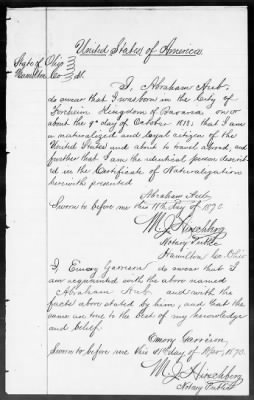 United States of America
State of Ohio
Hamilton Co
I, Abraham
do swear that I was born in the City of
Forcheim Kingdom of Bavaria, on or
about the 9th day of October 1818; that I am
a naturalized and loyal citizen of the
United States and about to travel abroad, and
further that I am the identical person describ-
ed in the Certificate of Naturalization
herewith presented
Abraham
Sworn to before me this 11th day of 1870
M. J. Hirschberg
Notary Public
Hamilton Co. Ohio
I Emory Garrison do swear that I
am acquainted with the above named
Abraham and with the
facts above stated by him, and that the
same are true to the best of my knowledge
and belief.
Emory Garrison,
Sworn to before me this day of 1870.
M. J. Hirschberg
Notary Public